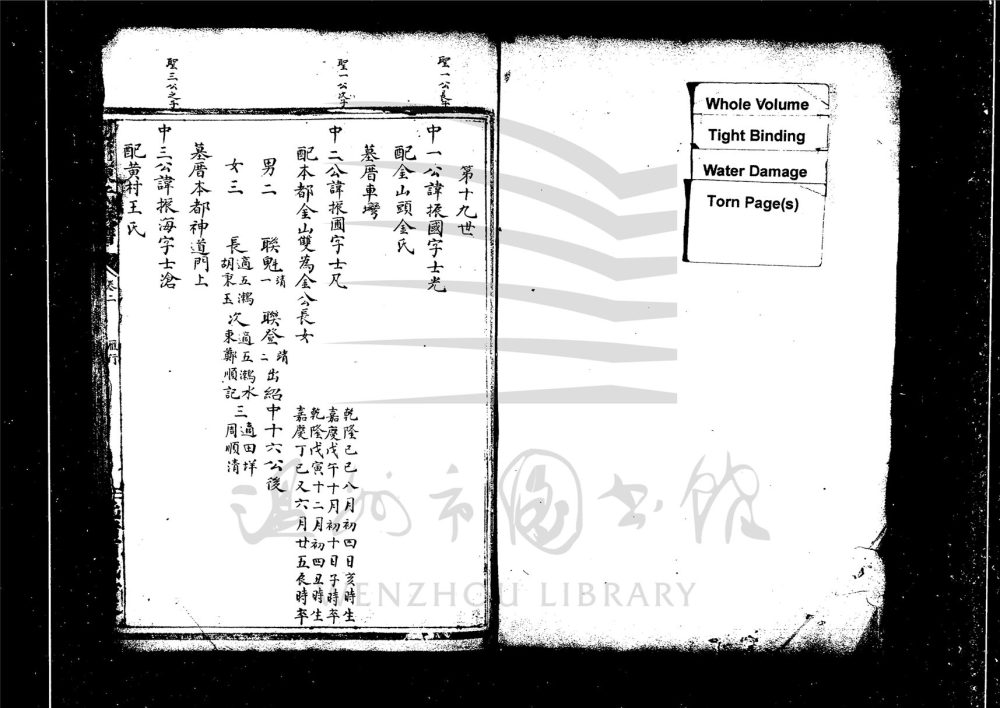 Whole Volume
Tight Binding
Water Damage
Torn Page(s)
聖一公長子
聖一公次子
聖三公之子
第十九世
中一公諱振國字士光
配金山頭金氏
墓厝車塆
中二公諱振圃字士凡
乾隆己巳八月初四日亥時生
嘉慶戊午十月初十日子時卒
配本都金山雙為金公長女
乾隆戊寅十二月初四丑時生
嘉慶丁巳又六月廿五辰時卒
男二 聯魁清一 聯登靖二 出紹中十六公後
女三 長適五鴻胡秉玉 次適五鴻水東鄭順記 三適田垟周順清
墓厝本都神道門上
中三公諱振海字士滄
配黃村王氏
卷二
溫州市圖書館
WENZHOU LIBRARY